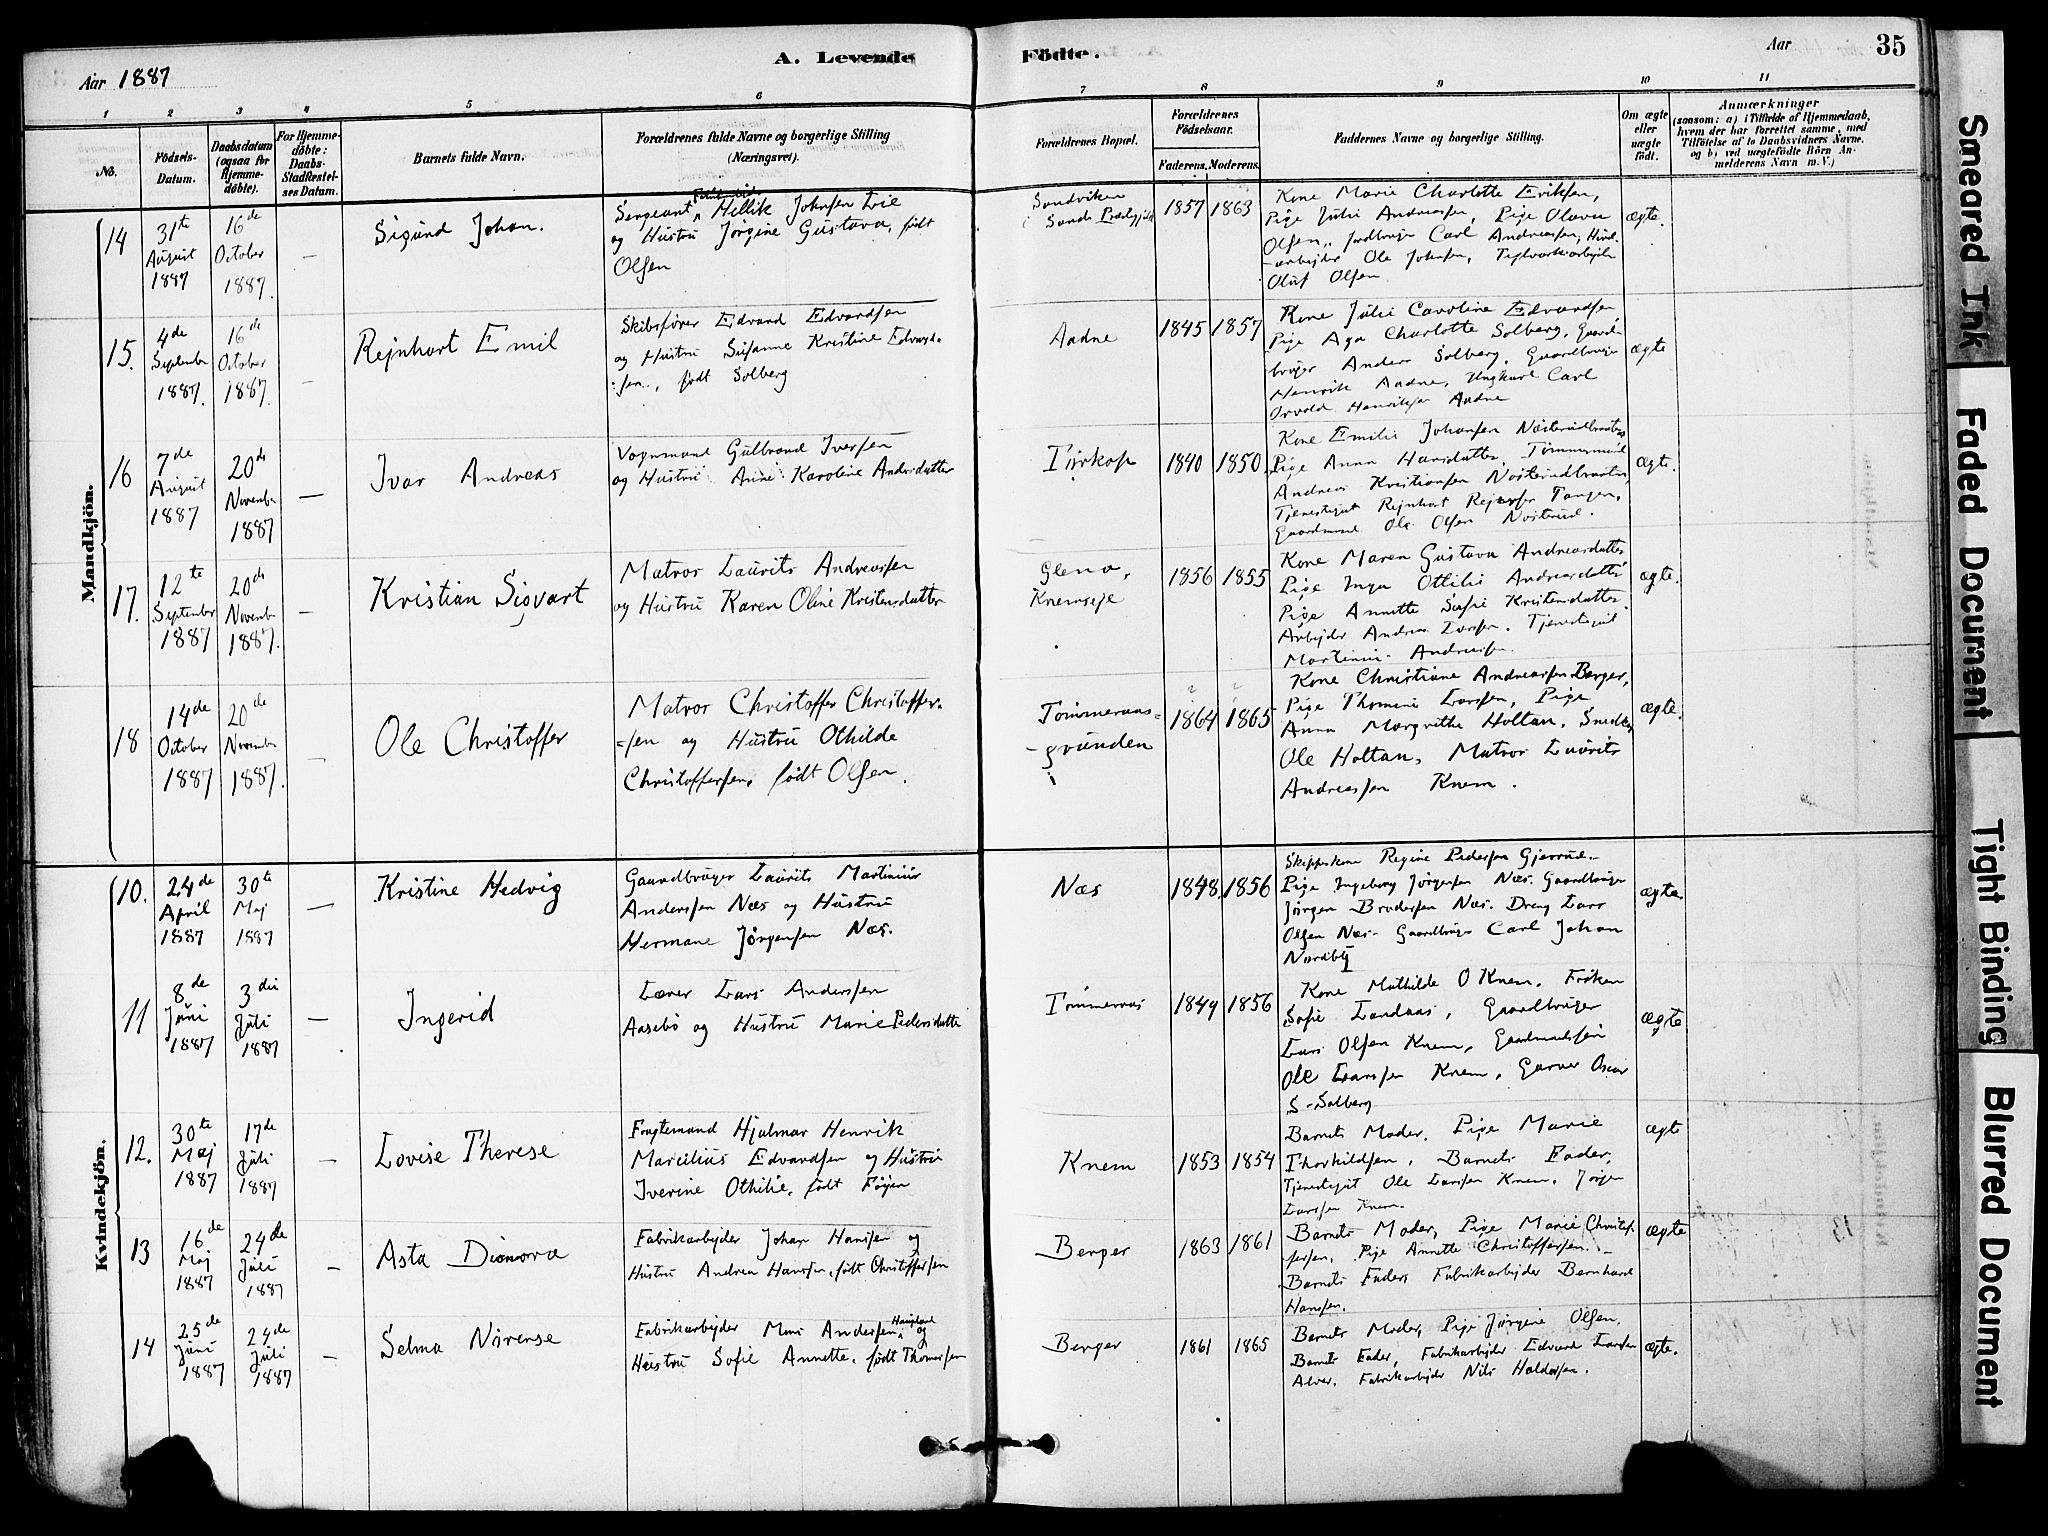 Aar 1887
A. Levende
Födte.
Aar
35
1
2
3
4
5
6
7
8
9
10
11
No.
Födsels-
Datum.
Daabsdatum
(ogsaa for
Hjemme-
döbte).
For Hjemme-
döbte:
Daabs-
Stadfæstel-
ses Datum.
Barnets fulde Navn.
Forældrenes fulde Navne og borgerlige Stilling
(Næringsvei).
Forældrenes Bopæl.
Forældrenes
Födselsaar.
Faderens.
Moderens.
Faddernes Navne og borgerlige Stilling.
Om ægte
eller
uægte
födt.
Anmærkninger
(saasom: a) i Tilfælde af Hjemmedaab,
hvem der har forrettet samme, med
Tilföielse af to Daabsvidners Navne,
og b) ved uægtefödte Börn An-
melderens Navn m. V.)
Mandkjön.
14
31te
August
1887
16de
October
1887.
—
Sigurd Johan.
Sergeant Hellik Johnsen Lie
og Hustru Jörgine Gustava, født
Olsen
Sandviken
Sande Præstegjeld
1857
1863
Kone Marie Charlotte Eriksen,
Pige Julie Andreasen, Pige Olava
Olsen, Jordbruger Carl Andreassen,
-arbejder Ole Johnsen, Teglværksarbejder
Oluf Olsen
ægte.
15.
4de
September
1887.
16de
October
1887.
—
Rejnhart Emil
Skibsfører Edvard Edvardsen
og Hustru Susanne Kristine Edvard-
:sen., født Solberg
Aadne
1845
1857
Kone Julie Caroline Edvardsen
Pige Aga Charlotte Solberg, Gaard-
bruger Anders Solberg, Gaardbruger
Henrik Aadne, Ungkarl Carl
Osvald Henriksen Aadne
ægte
16
7de
August
1887
20de
November
1887
—
Ivar Andreas
Vognmand Gulbrand Iversen
og Hustru Anne Karoline Andersdatter
Tørkop
1840
1850
Kone Emilie Johansen Nøsterudbraaten
Pige Anna Hansdatter, Tømmermand
Andreas Kristiansen Nøsterudbraaten,
Tjenestegut Rejnhart Rejersen Tangen,
Gaardmand Ole Olsen Nøsterud.
ægte.
17.
12te
September
1887
20de
November
1887.
—
Kristian Sigvart
Matros Laurits Andreassen
og Hustru Karen Oline Kristensdatter
Glena,
Knemseje
1856
1855
Kone Maren Gustava Andreasdatter
Pige Inga Ottilie Andreasdatter
Pige Annette Sofie Kristensdatter.
Arbejder Andreas Larsen. Tjenestegut
Martinius Andreasen
ægte.
18
14de
October
1887
20de
November
1887.
—
Ole Christoffer
Matros Christoffer Christoffer=
=sen og Hustru Othilde
Christoffersen, født Olsen.
Tømmeraas=
-grunden
1864
1865
Kone Christiane Andreassen Berger,
Pige Thomine Larsen, Pige
Anna Margrethe Holtan, Snedker
Ole Holtan, Matros Laurits
Andreassen Knem.
ægte.
Kvindekjön.
10.
24de
April
1887
30te
Maj
1887
—
Kristine Hedvig
Gaardbruger Laurits Martinius
Anderssen Næs og Hustru
Hermane Jörgensen Næs.
Næs
1848.
1856
Skipperkone Regine Pedersen Gjerrud.-
Pige Ingeborg Jørgensen Næs. Gaardbruger
Jørgen Brodersen Næs. Dreng Lars
Olsen Næs- Gaardbruger Carl Johan
Nordby
ægte
11
8de
Juni
1887
3die
Juli
1887
—
Ingerid
Lærer Lars Anderssen
Aasebö og Hustru Marie Pedersdatter
Tømmeraas
1849
1856
Kone Mathilde O Knem. Frøken
Sofie Landaas, Gaardbruger
Lars Olsen Knem, Gaardmandssøn
Ole Larssen Knem, Garver Oscar
S-Solberg
ægte
12.
30te
Maj
1887
17de
Juli
1887
—
Lovise Therese
Fragtemand Hjalmar Henrik
Marcilius Edvardsen og Hustru
Iverine Othilie, født Føyen
Knem
1853
1854
Barnets Moder. Pige Marie
Thorkildsen, Barnets Fader,
Tjenestegut Ole Larssen Knem. Jørgen
Larssen Knem.
ægte
13
16de
Maj
1887
24de
Juli
1887
—
Asta Dionora
Fabrikarbejder Johan Hansen og
Hustru Andrea Hanssen, født Christoffersen
Berger
1863
1861
Barnets Moder, Pige Marie Christof-
fersen, Pige Annette Christoffersen.-
Barnets Fader Fabrikarbejder Bernhard
Hanssen.
ægte
14
25de
Juni
1887
24de
Juli
1887
—
Selma Nörense
Fabrikarbejder Mons Andersen og
Hustru Sofie Annette, født Thomessen
Berger
1861
1865
Barnets Moder, Pige Jørgine Olsen,
Barnets Fader, Fabrikarbejder Edvard Larsen
Alver. Fabrikarbejder Nils Haldorsen.
ægte.
Smeared Ink
Faded Document
Tight Binding
Blurred Document